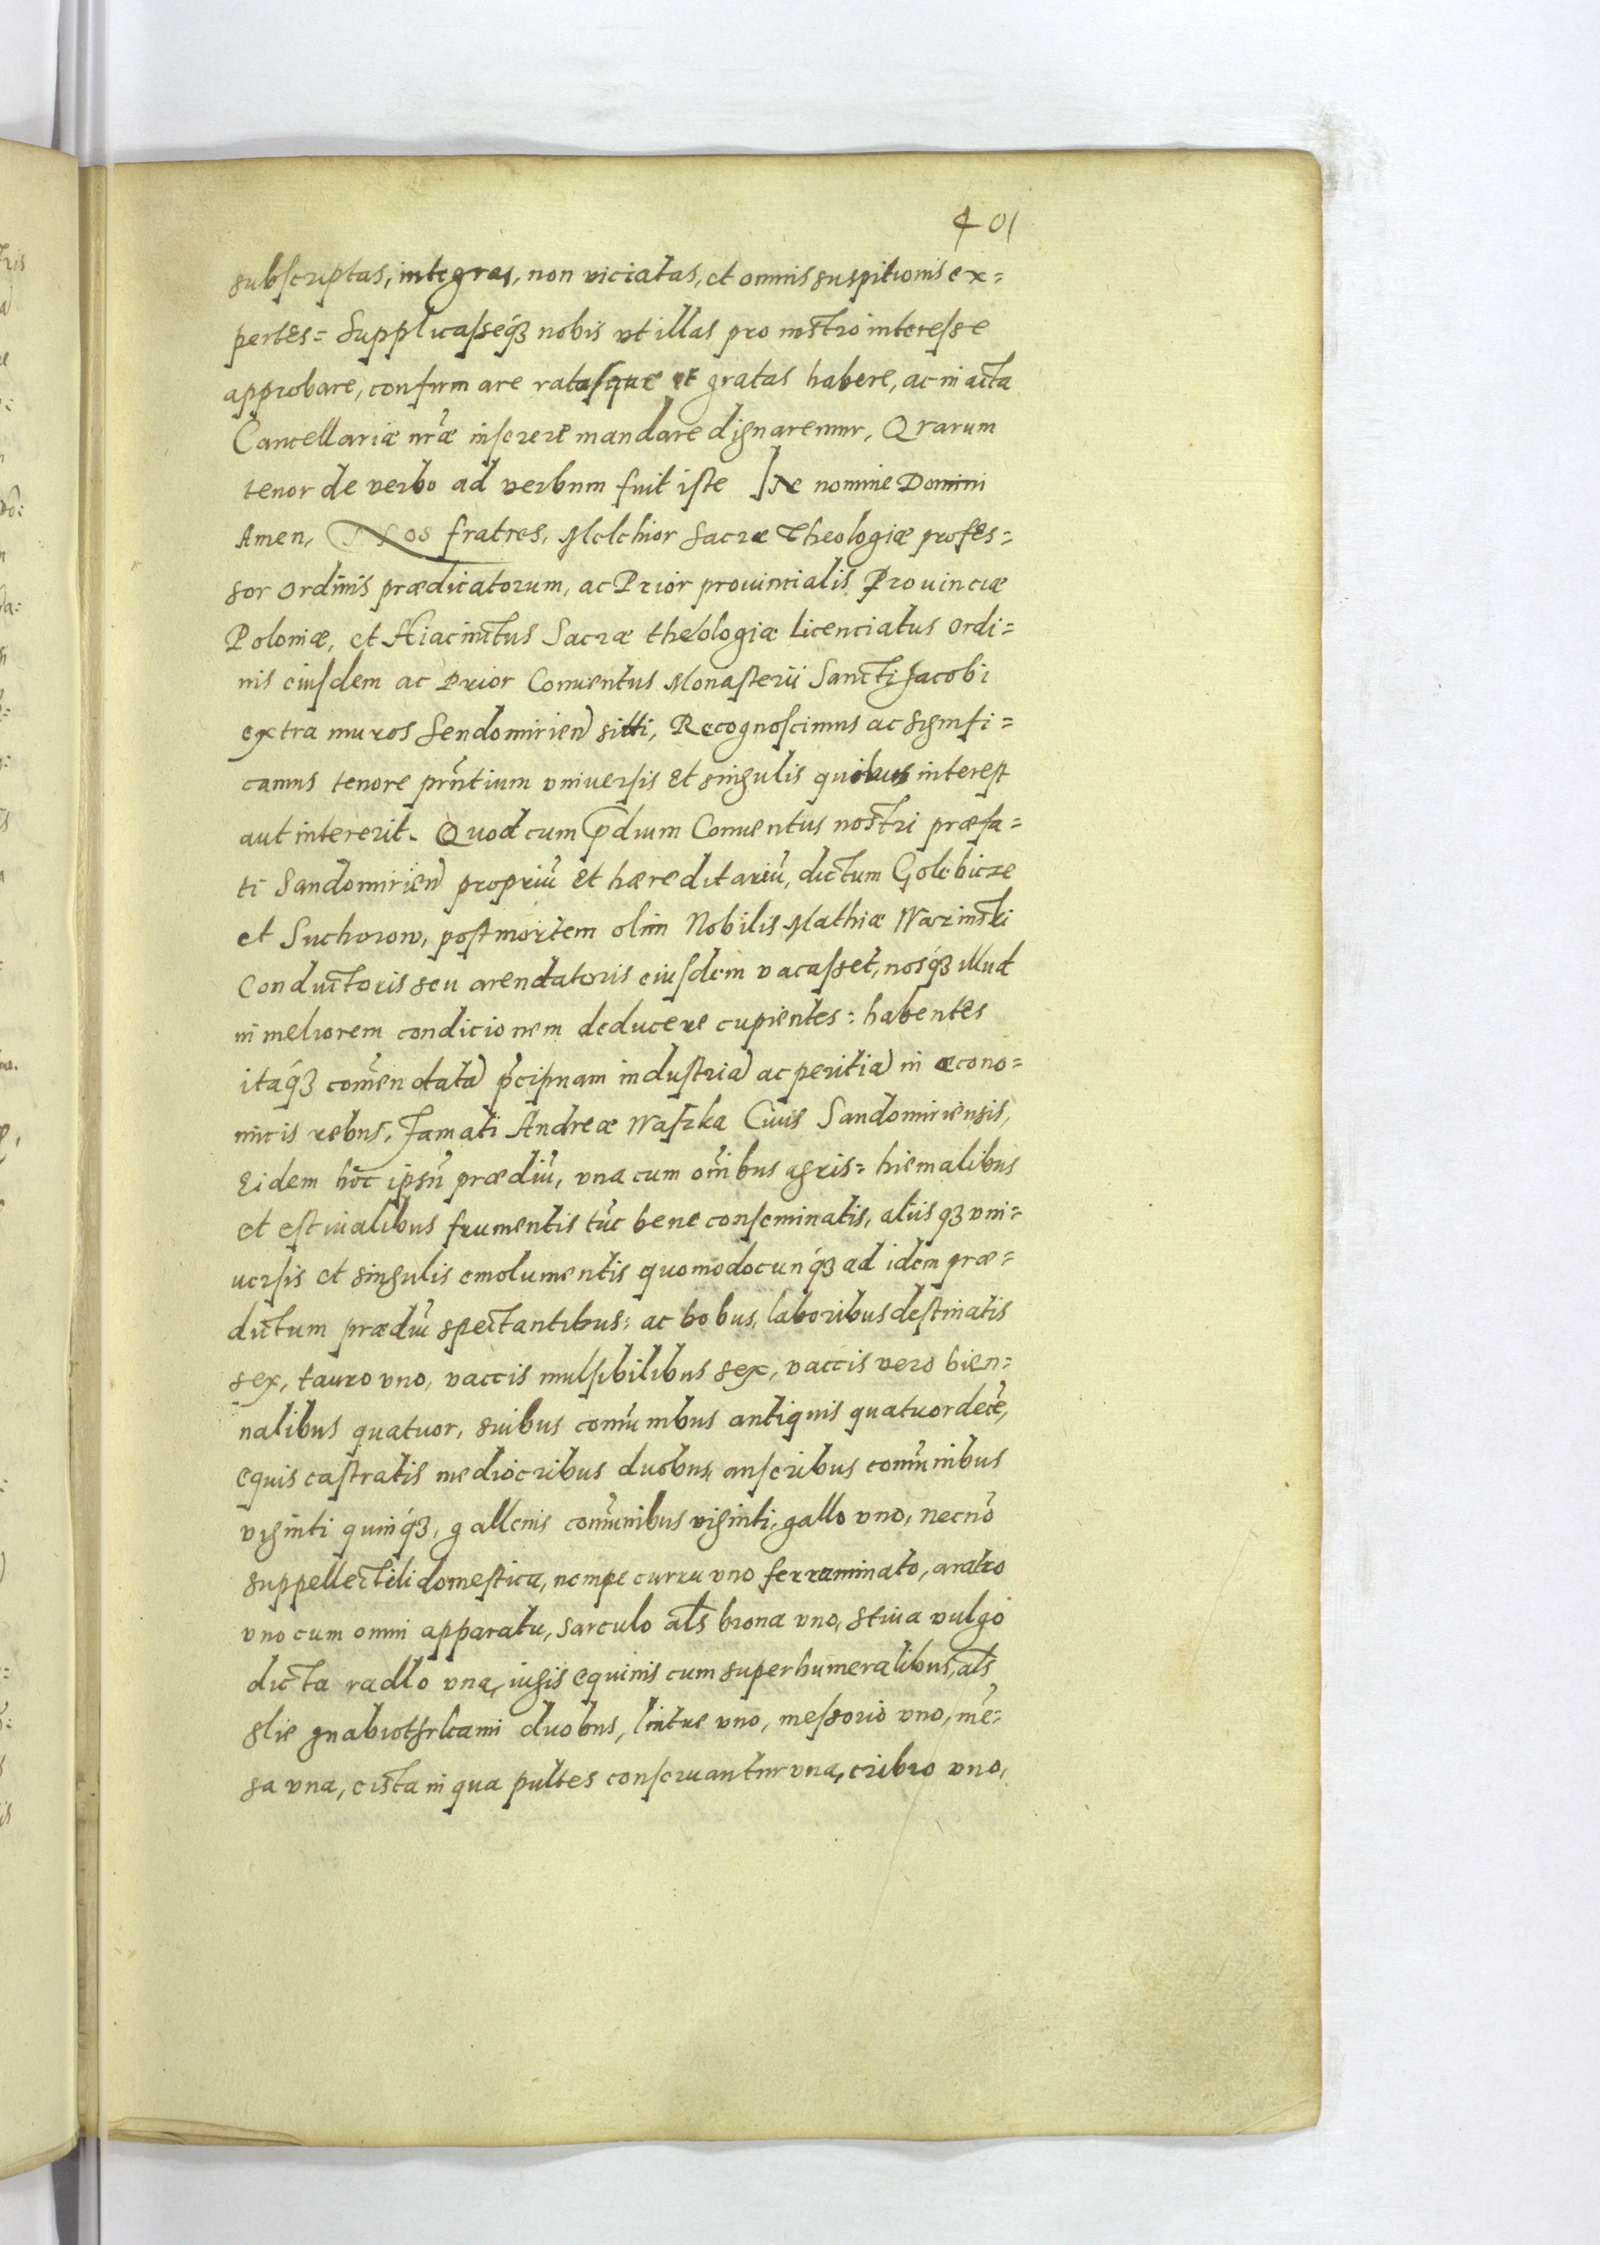 401
subscriptas, integras, non viciatas, et omnis suspitionis ex=
pertes= Supplicasseq́ꝫ nobis vt illas pro nostro interesse
approbare, confirmare ratasque et gratas habere, ac in acta
Cancellariæ nr̃æ inserere mandare dignaremur, Qrarum
tenor de verbo ad verbum fuit iste In nomine Domini
Amen, Nos fratres, Melchior Sacræ Theologiæ profes=
sor ordinis prædicatorum, ac Prior prouincialis Prouinciæ
Poloniæ, et Hiacinctus Sacræ theologiæ Licenciatus ordi=
nis eiusdem ac Prior Conuentus Monasterii Sancti Jacobi
extra muros Sendomirien̄ sitti, Recognoscimus ac signifi=
camus tenore prn̄tium vniuersis et singulis quibus interest
aut intererit. Quod cum p̄dium Conuentus nostri præfa=
ti Sandomirien̄ propriū et hæreditariū, dictum Golebicze
et Suchorow, post mortem olim Nobilis Mathiæ Warzinski
Conductoris seu arendatoris eiusdem vacasset, nosq́ꝫ illud
in meliorem condicionem deducere cupientes: habentes
itaq́ꝫ com̄endatā p̄cipuam industriā ac peritiā in œcono=
micis rebus, Famati Andreæ Waszka Ciuis Sandomiriensis,
Eidem hoc ipsū prædiū, vna cum om̄ibus agris= hiemalibus
et estiualibus frumentis tūc bene conseminatis, aliisqꝫ vni=
uersis et singulis emolumentis quomodocunq́ꝫ ad idem præ=
dictum prædiū spectantibus: ac bobus, laboribus destinatis
sex, tauro vno, vaccis mulsibilibus sex, vaccis vero bien=
nalibus quatuor, suibus com̄unibus antiquis quatuordecē,
equis castratis mediocribus duobus, anseribus com̄unibus
viginti quinq́ꝫ, gallenis com̄unibus viginti, gallo vno, necnō
suppellectili domestica, nempe curru vno ferraminato, aratro
vno cum omni apparatu, sarculo al̄s brona vno, stiua vulgo
dicta radlo vna, iugis equinis cum superhumeralibus, al̄s
slie duobus, lintre vno, messorio vno, mē=
sa vna, cista in qua pultes conseruantur vna, cribro vno,